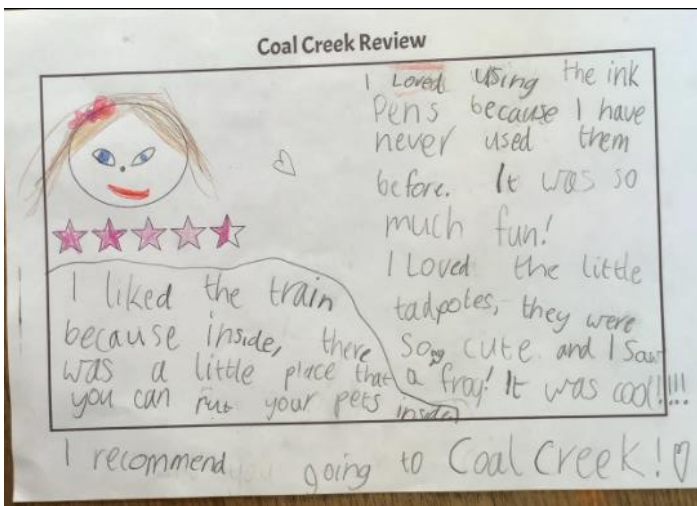 Coal Creek Review
I Loved using the ink
Pens because I have
never used them
before. It was so
much fun!
I Loved the little
tadpoles, they were
So cute and I Saw
a frog! It was cool!!!!
I liked the train
because inside, there
was a little place that
you can put your pets inside
I recommend going to Coal Creek!